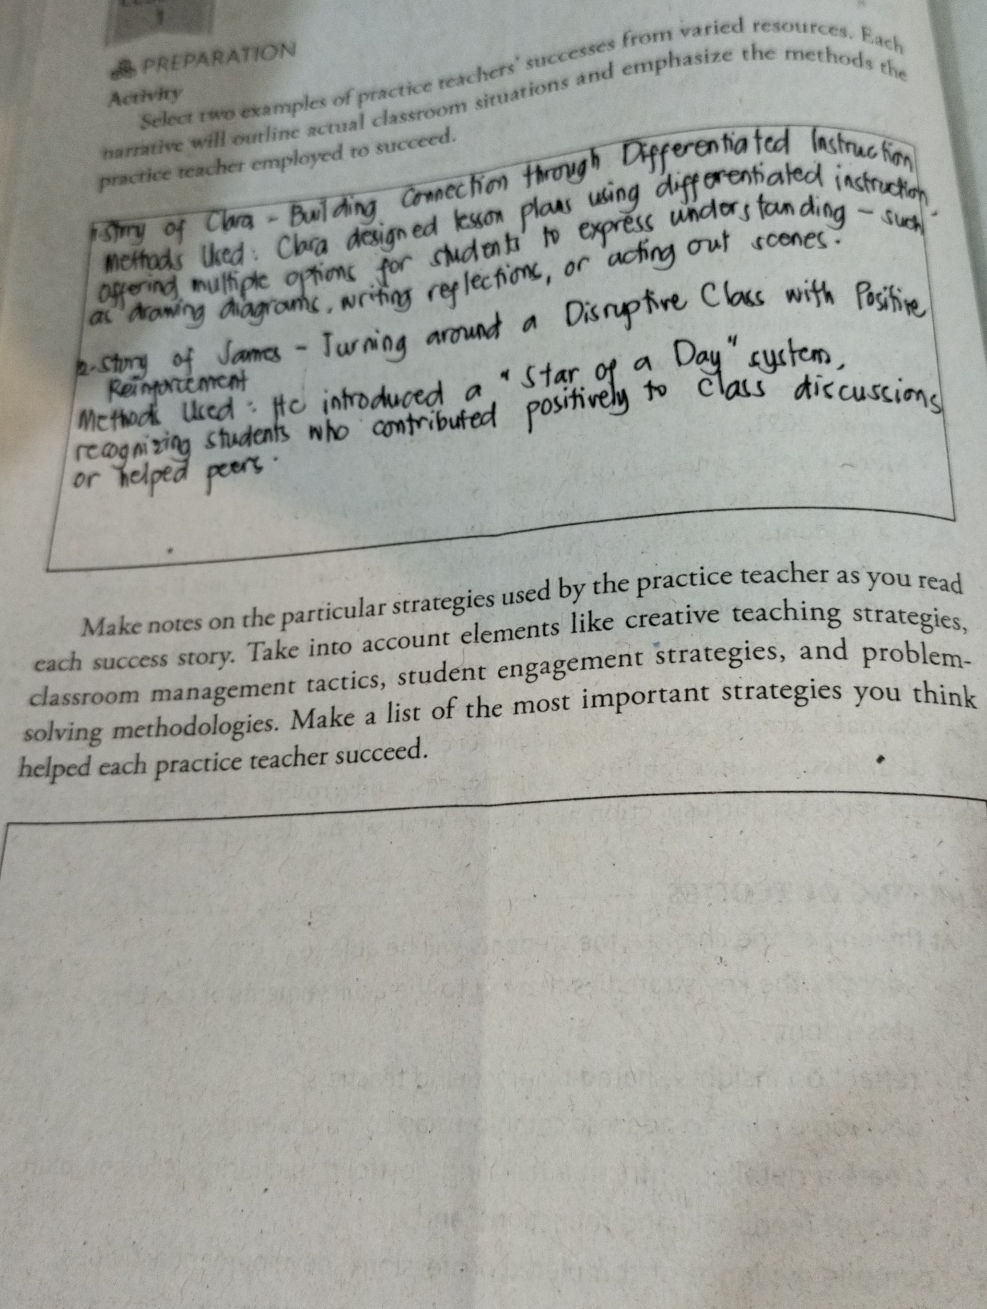 1
PREPARATION
Activity
Select two examples of practice teachers' successes from varied resources. Each
narrative will outline actual classroom situations and emphasize the methods the
practice teacher employed to succeed.
1-story of Clara - Building Connection through Differentiated Instruction
Methods Used: Clara designed lesson plans using differentiated instruction,
offering multiple options for students to express understanding - such
as drawing diagrams, writing reflections, or acting out scenes.
2-story of James - Turning around a Disruptive Class with Positive
Reinforcement
Methods Used: He introduced a "Star of a Day" system,
recognizing students who contributed positively to class discussions
or helped peers.
Make notes on the particular strategies used by the practice teacher as you read
each success story. Take into account elements like creative teaching strategies,
classroom management tactics, student engagement strategies, and problem-
solving methodologies. Make a list of the most important strategies you think
helped each practice teacher succeed.